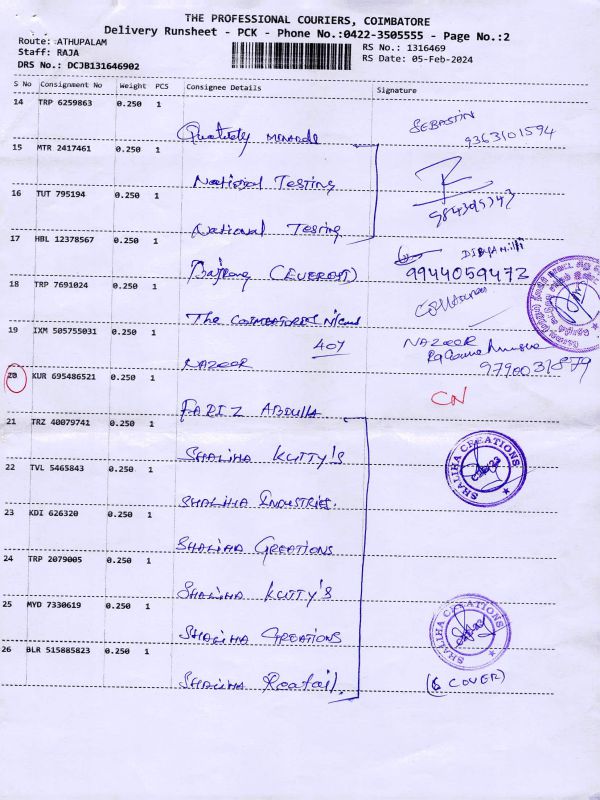 THE PROFESSIONAL COURIERS, COIMBATORE
Delivery Runsheet - PCK - Phone No.:0422-3505555 - Page No.:2
Route: ATHUPALAM
RS No.: 1316469
Staff: RAJA
RS Date: 05-Feb-2024
DRS No.: DCJB131646902
S No Consignment No Weight PCS Consignee Details Signature
14 TRP 6259863 0.250 1
SEBASTIN
9363101594
15 MTR 2417461 0.250 1
National Testing
16 TUT 795194 0.250 1
National Testing
17 HBL 12378567 0.250 1
9944059472
18 TRP 7691024 0.250 1
The COIMBATORE
19 IXM 505755031 0.250 1
407
NAZEER
NAZOOR
9790031879
20 KUR 695486521 0.250 1
CN
FARIZ ABDULLA
21 TRZ 40079741 0.250 1
SHALIHA KUTTY'S
SHALIHA CREATIONS
22 TVL 5465843 0.250 1
SHALIHA INDUSTRIES.
23 KDI 626320 0.250 1
SHALIHA CREATIONS
24 TRP 2079005 0.250 1
SHALIHA KUTTY'S
25 MYD 7330619 0.250 1
SHALIHA CREATIONS
SHALIHA CREATIONS
26 BLR 515885823 0.250 1
SHALIHA
(6 COVER)